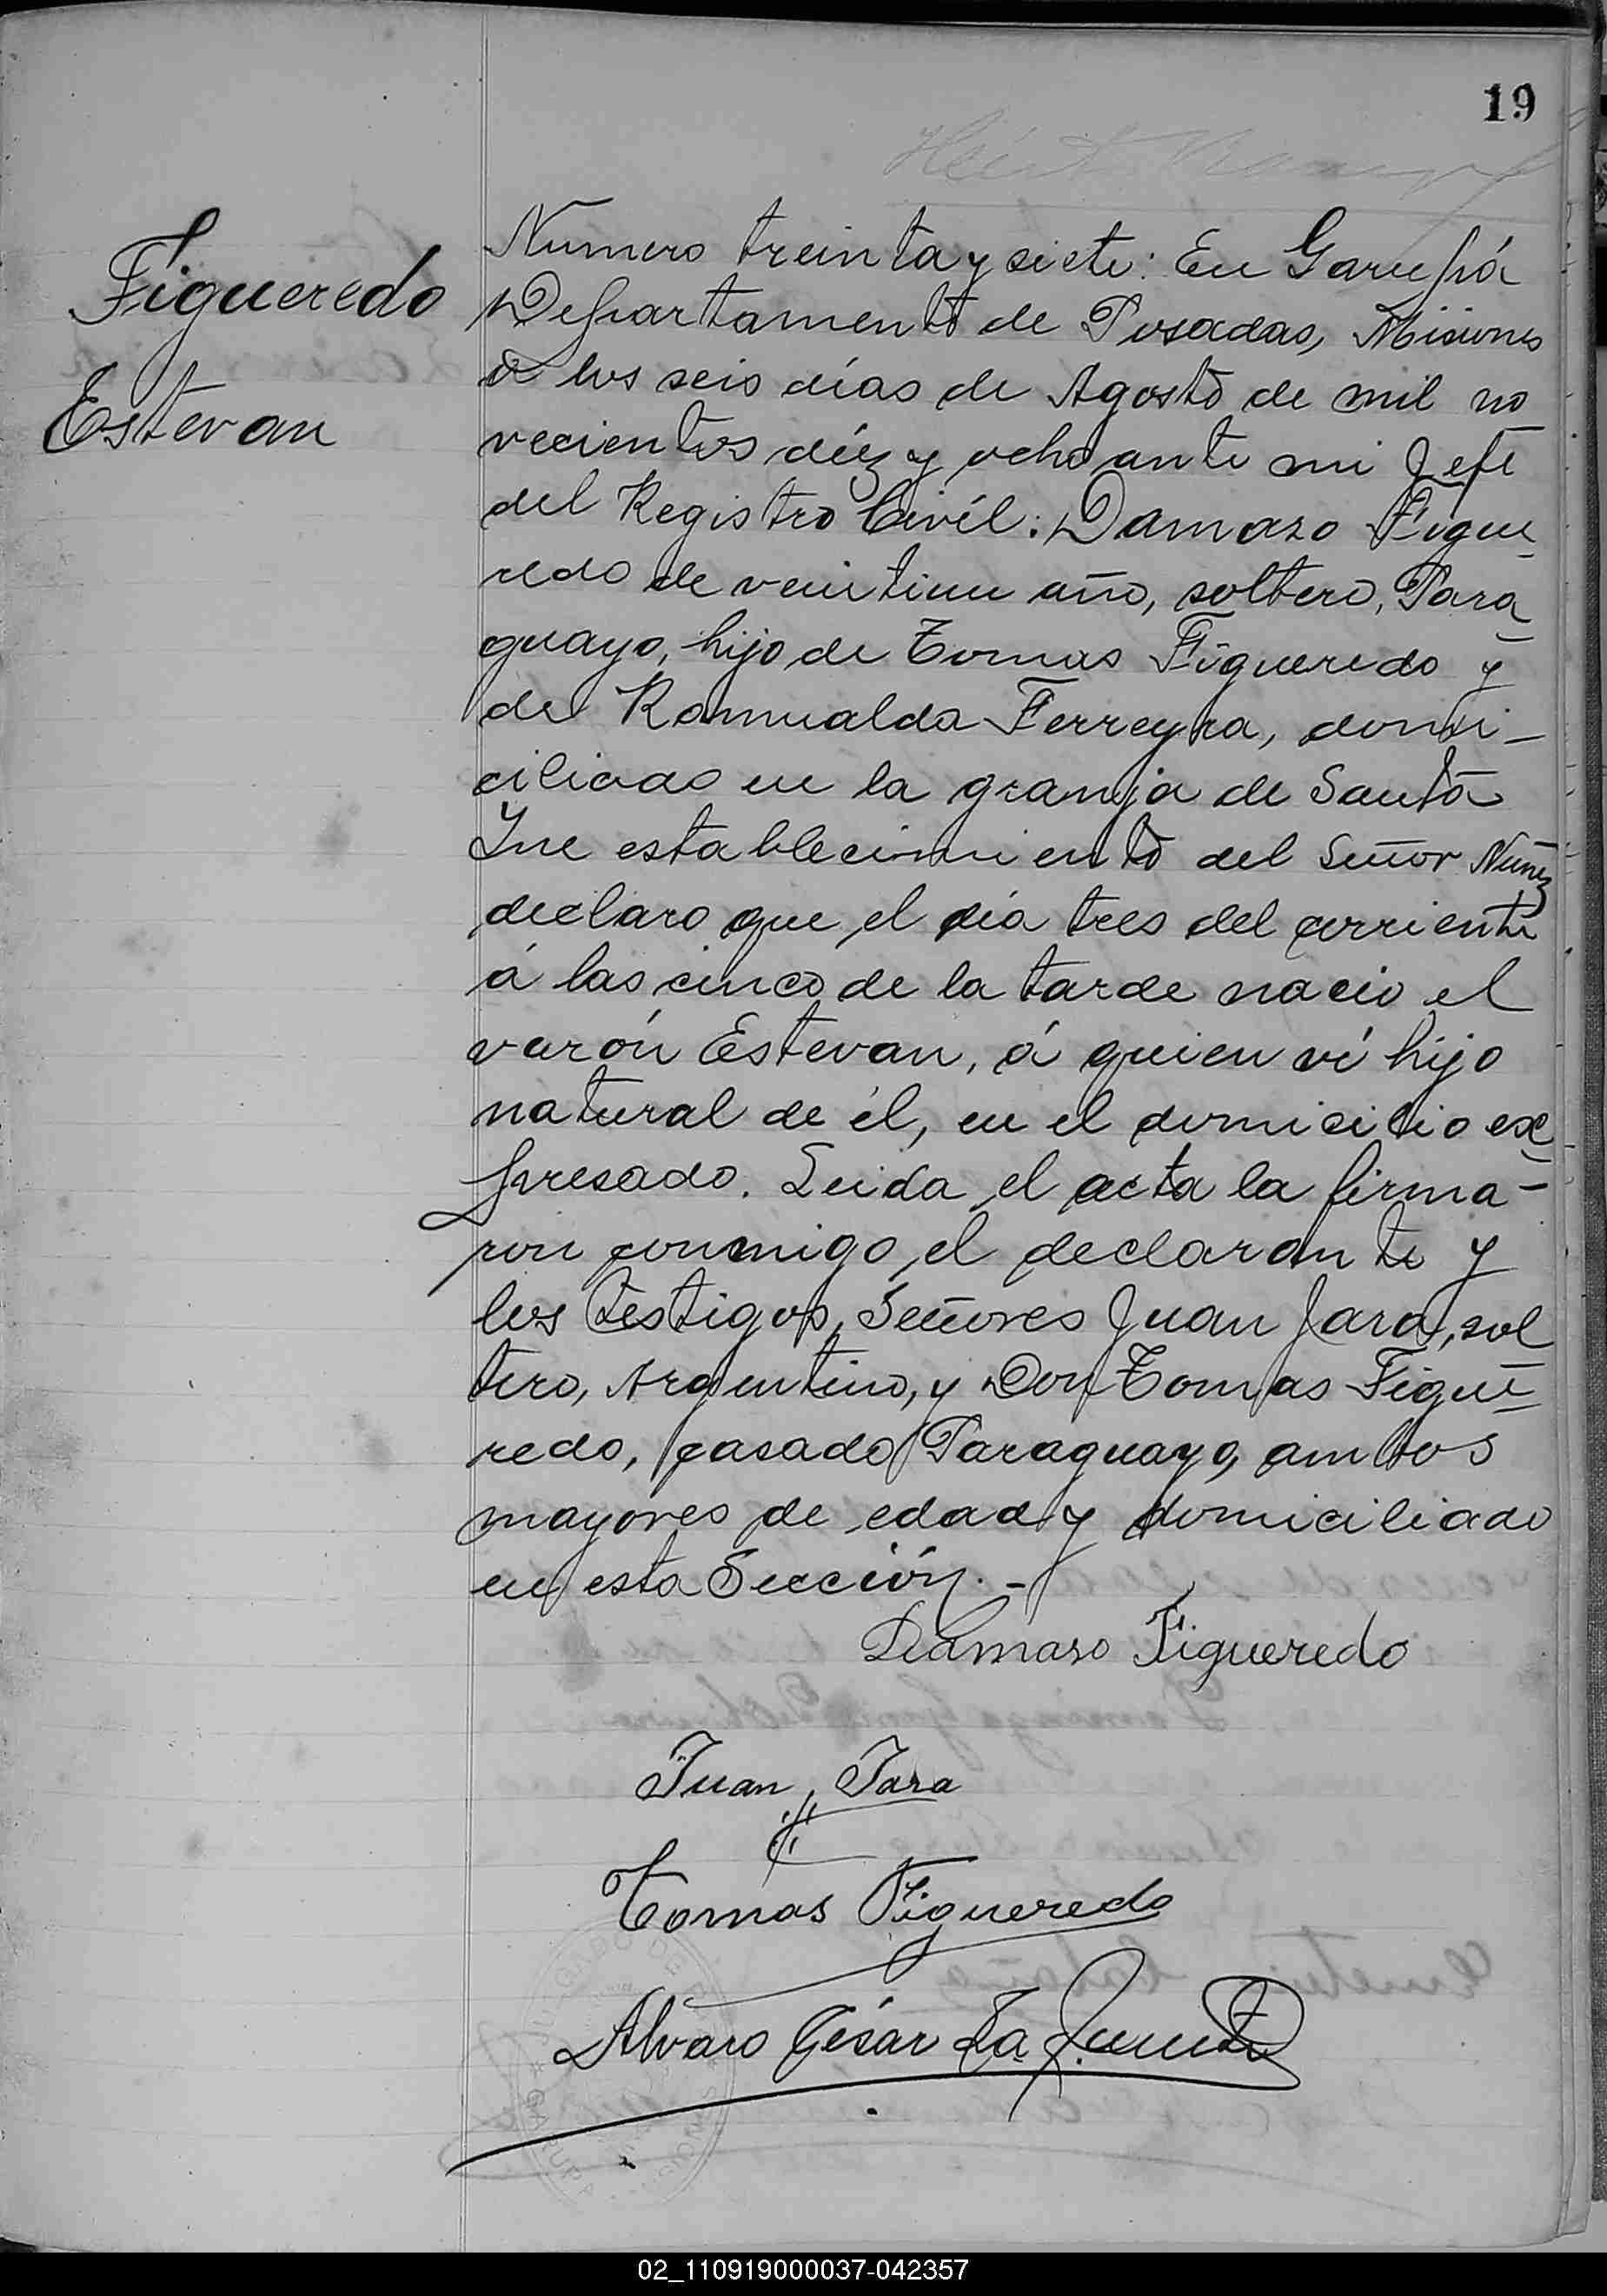 19
Figueredo
Estevan
Número treinta y siete: En Garupá
Departamento de Posadas, Misiones
á los seis días de Agosto de mil no
vecientos diéz y ocho ante mi Jefe
del Registro Civíl: Damazo Figue_
redo de veintiun año, soltero, Para_
guayo, hijo de Tomas Figueredo y
de Romualda Ferreyra, domi-
ciliado en la granja de Santa
Ine establecimiento del Señor Nuñez
declaro que el día tres del corriente
á las cinco de la tarde nacio el
varón Estevan, á quien ví hijo
natural de él, en el domicilio ex_
presado. Leida el acta la firma-
ron conmigo el declarante y
los testigos, Señores Juan Jara, sol
tero, Argentino, y Don Tomas Figue_
redo, casado Paraguayo, ambos
mayores de edad y domiciliado
en esta Sección.-
Damaso Figueredo
Juan Jara
Tomas Figueredo
Alvaro César La Puente
02_110919000037-042357